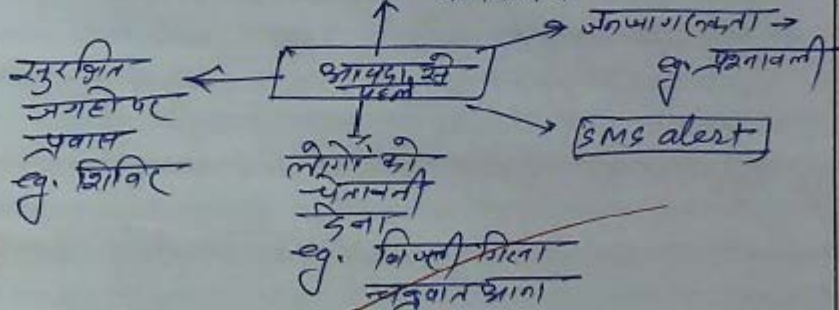 जनजागरूकता →
eg. प्रश्नावली
आपदा से
पहले
सुरक्षित
जगहों पर
प्रवास
eg. शिविर
SMS alert
लोगों को
चेतावनी
देना
eg. बिजली गिरना
चक्रवात आना